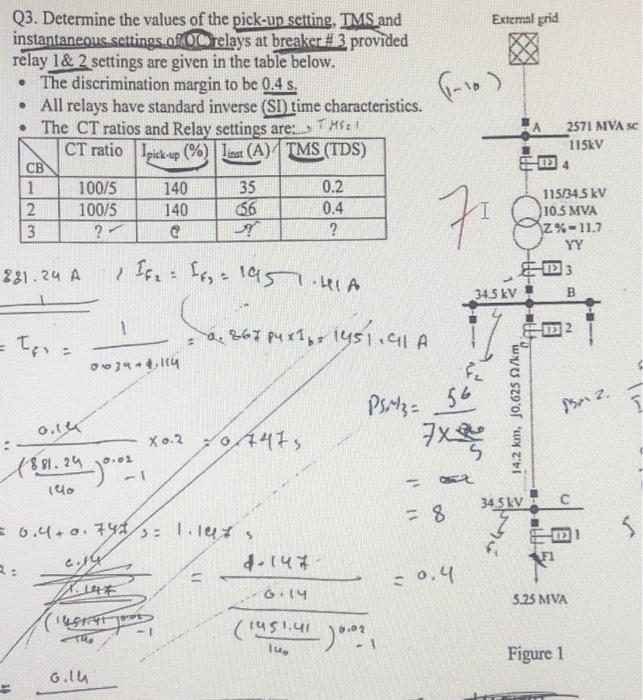 Q3. Determine the values of the pick-up setting, TMS and
instantaneous settings of OC relays at breaker # 3 provided
relay 1& 2 settings are given in the table below.
• The discrimination margin to be 0.4 s.
• All relays have standard inverse (SI) time characteristics.
• The CT ratios and Relay settings are:
CB CT ratio Ipick-up (%) Iinst (A) TMS (TDS)
1 100/5 140 35 0.2
2 100/5 140 56 0.4
3 ? ? ?
External grid
(1-10)
A 2571 MVA sc
115kV
4
115/34.5 kV
10.5 MVA
Z%=11.7
YY
7
3
34.5 kV B
2
14.2 km, j0.625 Ω/km
F2
34.5 kV C
1
F1
F1
5.25 MVA
Figure 1
881.24 A , IF2 = IF3 = 1451.41 A
= IF3 = 1 / 0.034+0.114 = 0.867 pu x Ib = 1451.41 A
PSM3 = 56 / 7x
5
= 8
= 0.14 / (881.24 / 140)^0.02 - 1 x 0.2 = 0.747 s
= 0.4 + 0.747 s = 1.147 s
= 1.147 / 0.14 / (1451.41 / 140)^0.02 - 1 = 0.4
= 0.14